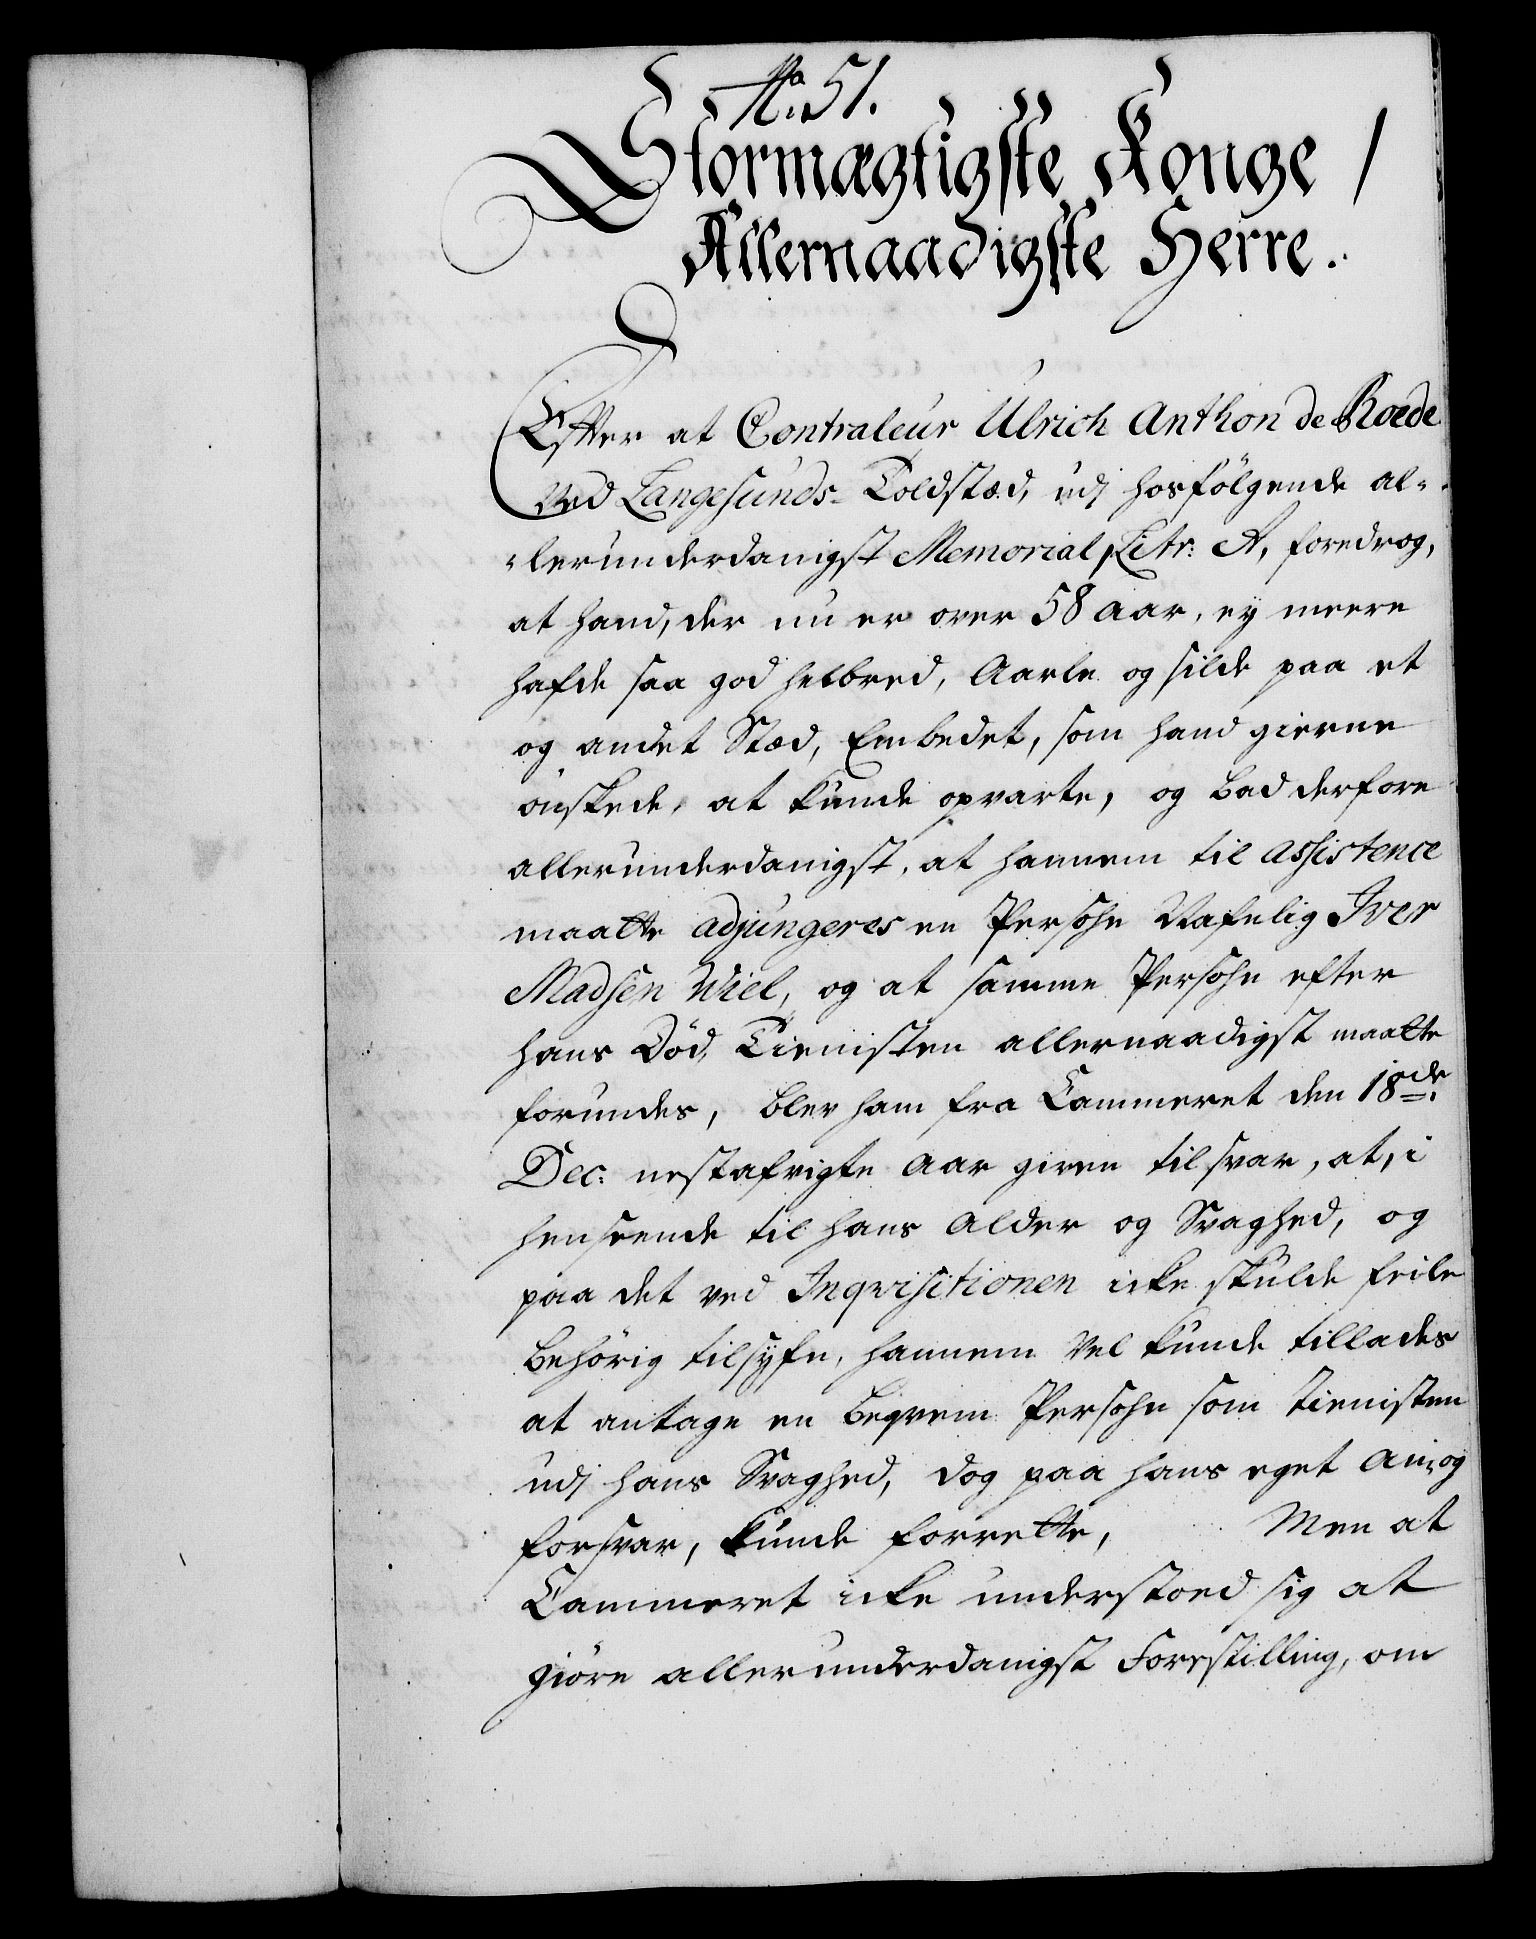 No. 51.
Stormægtigste Konge /
Allernaadigste Herre.
Efter at Contraleur Ulrich Anthon de Roede
ved Langesunds Toldstæd, udj hosfölgende al-
lerunderdanigst Memorial, Litr: A, foredrog,
at hand, der nu er over 58 aar, ey meere
hafde saa god helbred, Aarle og silde paa et
og andet Stæd, Embedet, som hand gierne
önskede, at kunde opvarte, og bad derfore
allerunderdanigst, at hannem til assistence
maatte adjungeres en Persohn Nafnlig Iver
Madsen Wiel, og at samme Persohn efter
hans Död, Tienisten allernaadigst maatte
forundes, blev ham fra Cammeret den 18de
Dec: nestafvigte Aar given til svar, at, i
henseende til hans Alder og Svaghed, og
paa det ved Inqvisitionen icke skulde feile
behörig tilsyfn, hannem vel kunde tillades
at antage en beqvem Persohn som Tienisten
udj hans Svaghed, dog paa hans eget An- og
forsvar, kunde forrette, Men at
Cammeret icke understoed sig at
giöre allerunderdanigst Forestilling, om